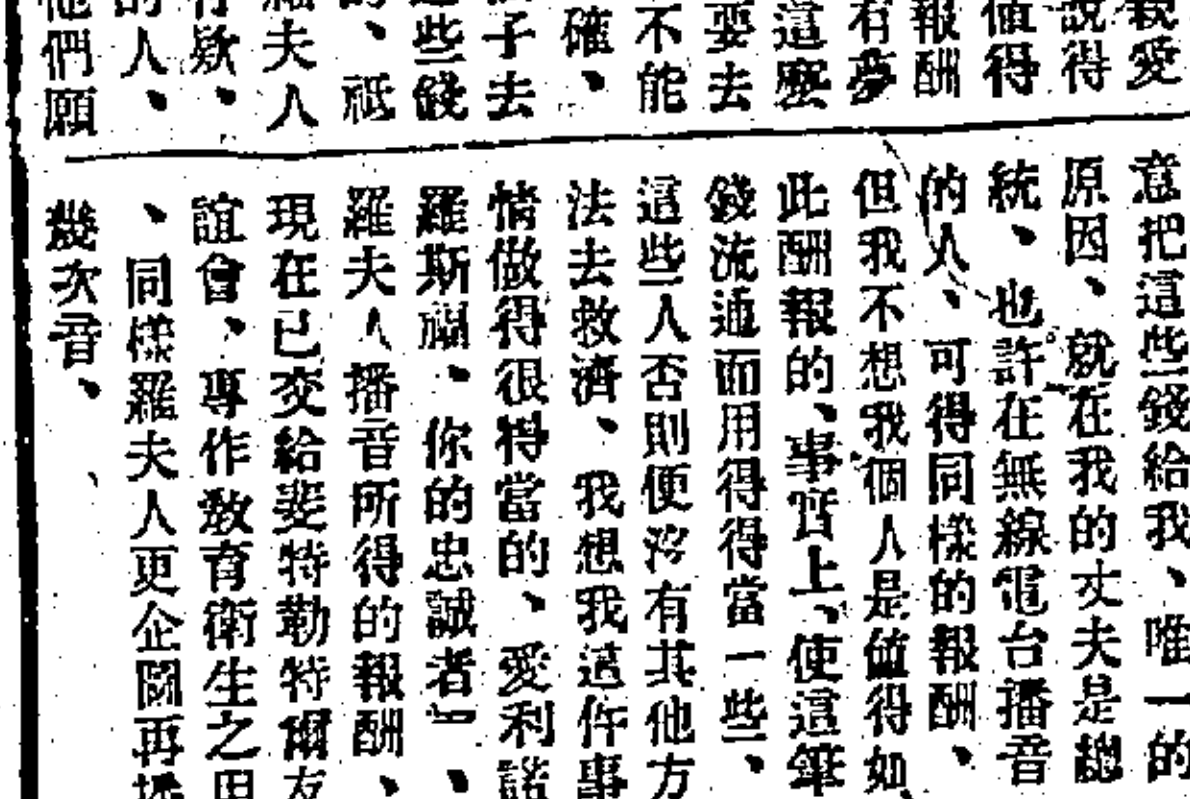 親愛
說得
值得
報酬
有夢
這麼
要去
不能
確、
子去
這些錢
、祗
羅夫人
有欵、
的人、
他們願
意把這些錢給我、唯一的
原因、就在我的丈夫是總
統、也許在無線電台播音
的人、可得同樣的報酬、
但我不想我個人是值得如
此酬報的、事實上、使這筆
錢流通而用得得當一些、
這些人否則便沒有其他方
法去救濟、我想我這件事
情做得很得當的、愛利諾
羅斯福、你的忠誠者」、
羅夫人播音所得的報酬、
現在已交給斐特勒特爾友
誼會、專作教育衛生之用
、同樣羅夫人更企圖再播
幾次音、